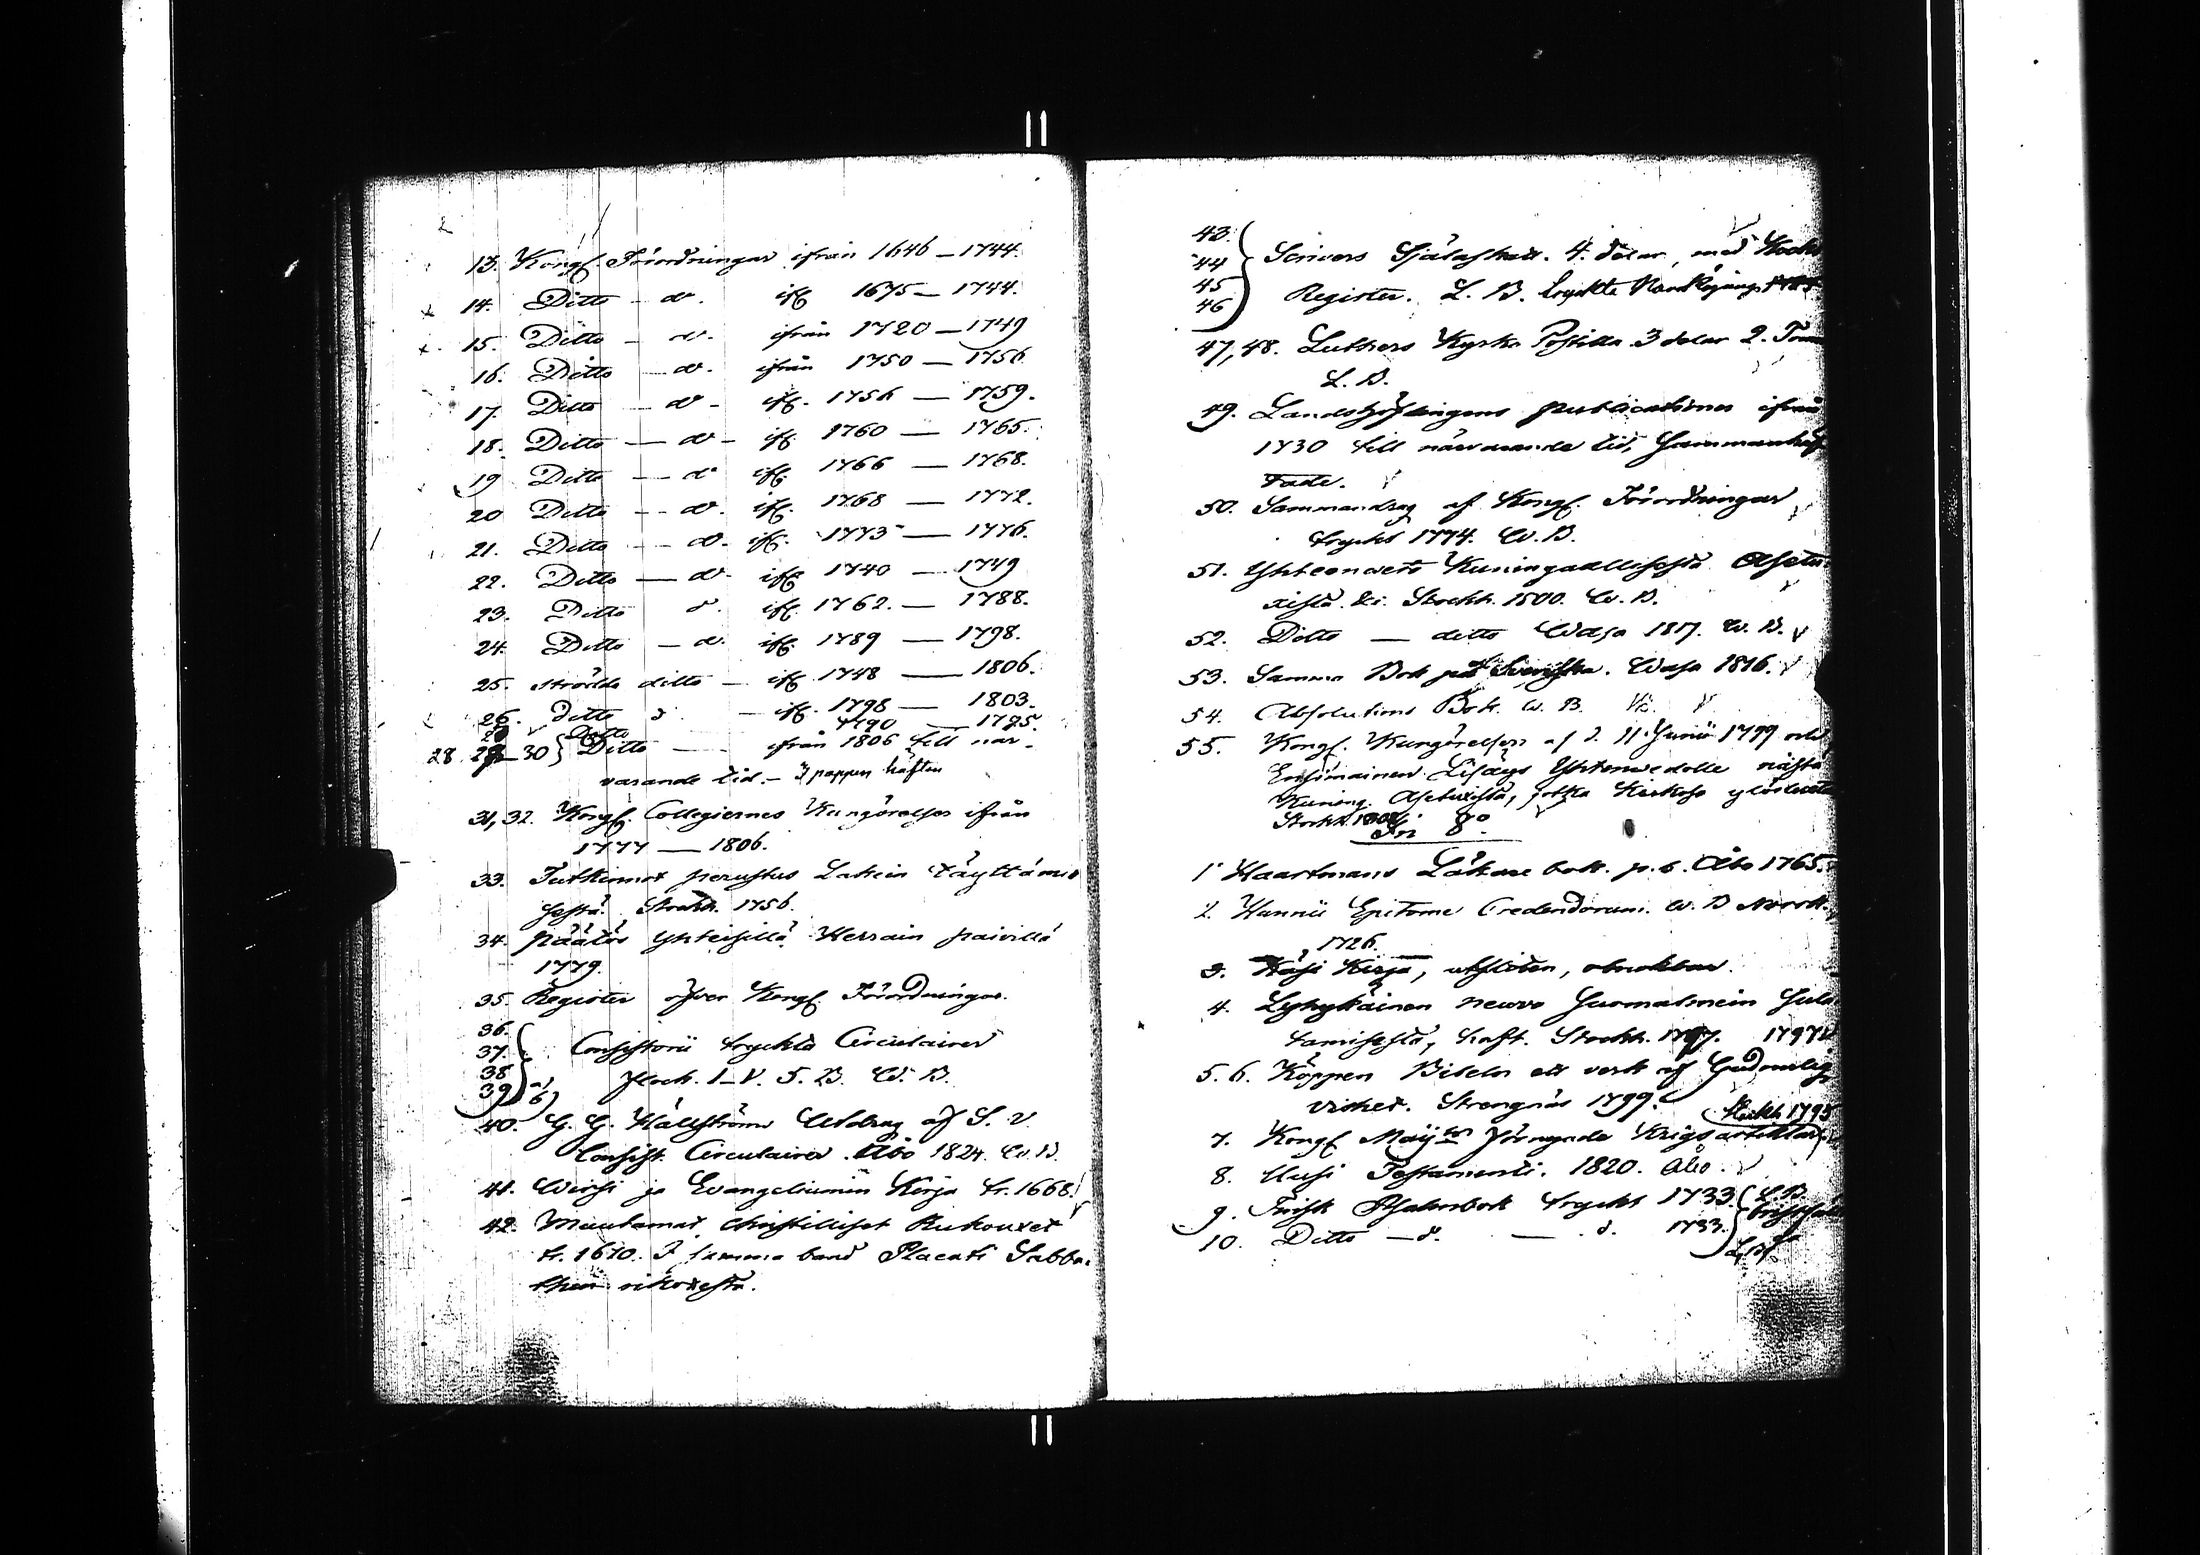 13. Kongl. Förordningar ifrån 1646 — 1744.
14. Ditto — do. ifr. 1675 — 1744.
15. Ditto — do. ifrån 1720 — 1749
16. Ditto — do. ifrån 1750 — 1756
17. Ditto — do — ifr. 1756 — 1759.
18. Ditto — do — ifr. 1760 — 1765.
19 Ditto — do ifr. 1766 — 1768.
20 Ditto — do. ifr. 1768 — 1772.
21. Ditto — do. ifr. 1773 — 1776.
22. Ditto — do. ifr. 1740 — 1749
23. Ditto d. ifr. 1762. — 1788.
24. Ditto — do. ifr. 1789 — 1798.
25. strödda ditto — ifr. 1748 — 1806.
26. ditto d — ifr. 1798 — 1803.
Ditto 1790 — 1795.
28 — 30} Ditto — ifrån 1806 till när-
varande tid. — I pappen häften
31, 32. Kongl. Collegiernes Kungörelser ifrån
1777 — 1806.
33. Tutkinnot perustus Lakein täyttämi-
sestä. Stockh. 1756.
34. päätös Yhteisillä Herrain paivillä
1779.
35. Register öfver Kongl. Förordningar.
36.
37. Consistorii tryckta Circulairer
38 flock. I–V. S. B. W. B.
39
40. G. G. Hällströms Utdrag af S. V.
Consist. Circulairer. Åbo 1824. W. B.
41. Weisi ja Evangeliumin Kirja tr. 1668.
42. Muutamat Christilliset Rukouxet
tr. 1670. I samma band Placati Sabba-
thin rikoxesta.
43.
44 Scrivers Själaskatt. 4. delar, med
45
46 Register. L. B. tryckte Norrköping
47, 48. Luthers Kyrko Postilla 3 delar 2.
L. B.
49. Landshöfdingens publicationer ifrån
1730 till närvarande tid, Sammanhäf-
tade.
50. Sammandrag af Kongl. Förordningar
tryckt 1774. W. B.
51. Yhteenweto Kuningaallisista Asetu-
xista. &c. Stockh. 1800. W. B.
52. Ditto — ditto Wasa 1817. W. B.
53. Samma Bok på Svenska. Wasa 1816.
54. Absolutions Bok. W. B.
55. Kongl. Kungörelsen af d. 11 Junii 1799 och
Ensimäinen Lisäys Yhteenwedolle näistä
Kuning. Asetuxista, jotka Kirkosa
Stockh.
In 8o.
1 Haartmans Läkare bok. p. b. Åbo 1765.
2. Hunnii Epitome Credendorum. W. B
1726.
3. Käsi Kirja, utsliten, obrukbar.
4. Lyhykäinen neuwo Suomalmein
tamisesta, häft. Stockh. 1797. 1797
5. 6. Köppen Bibeln ett verk af Gudomlig
vishet. Strengnäs 1799.
Stockh 1798
7. Kongl Maijts förnyade Krigsartiklar
8. Uusi Testamenti. 1820. Åbo.
9. Finsk Psalmbok tryckt 1733. L. B.
10. Ditto — d. — d. 1733.